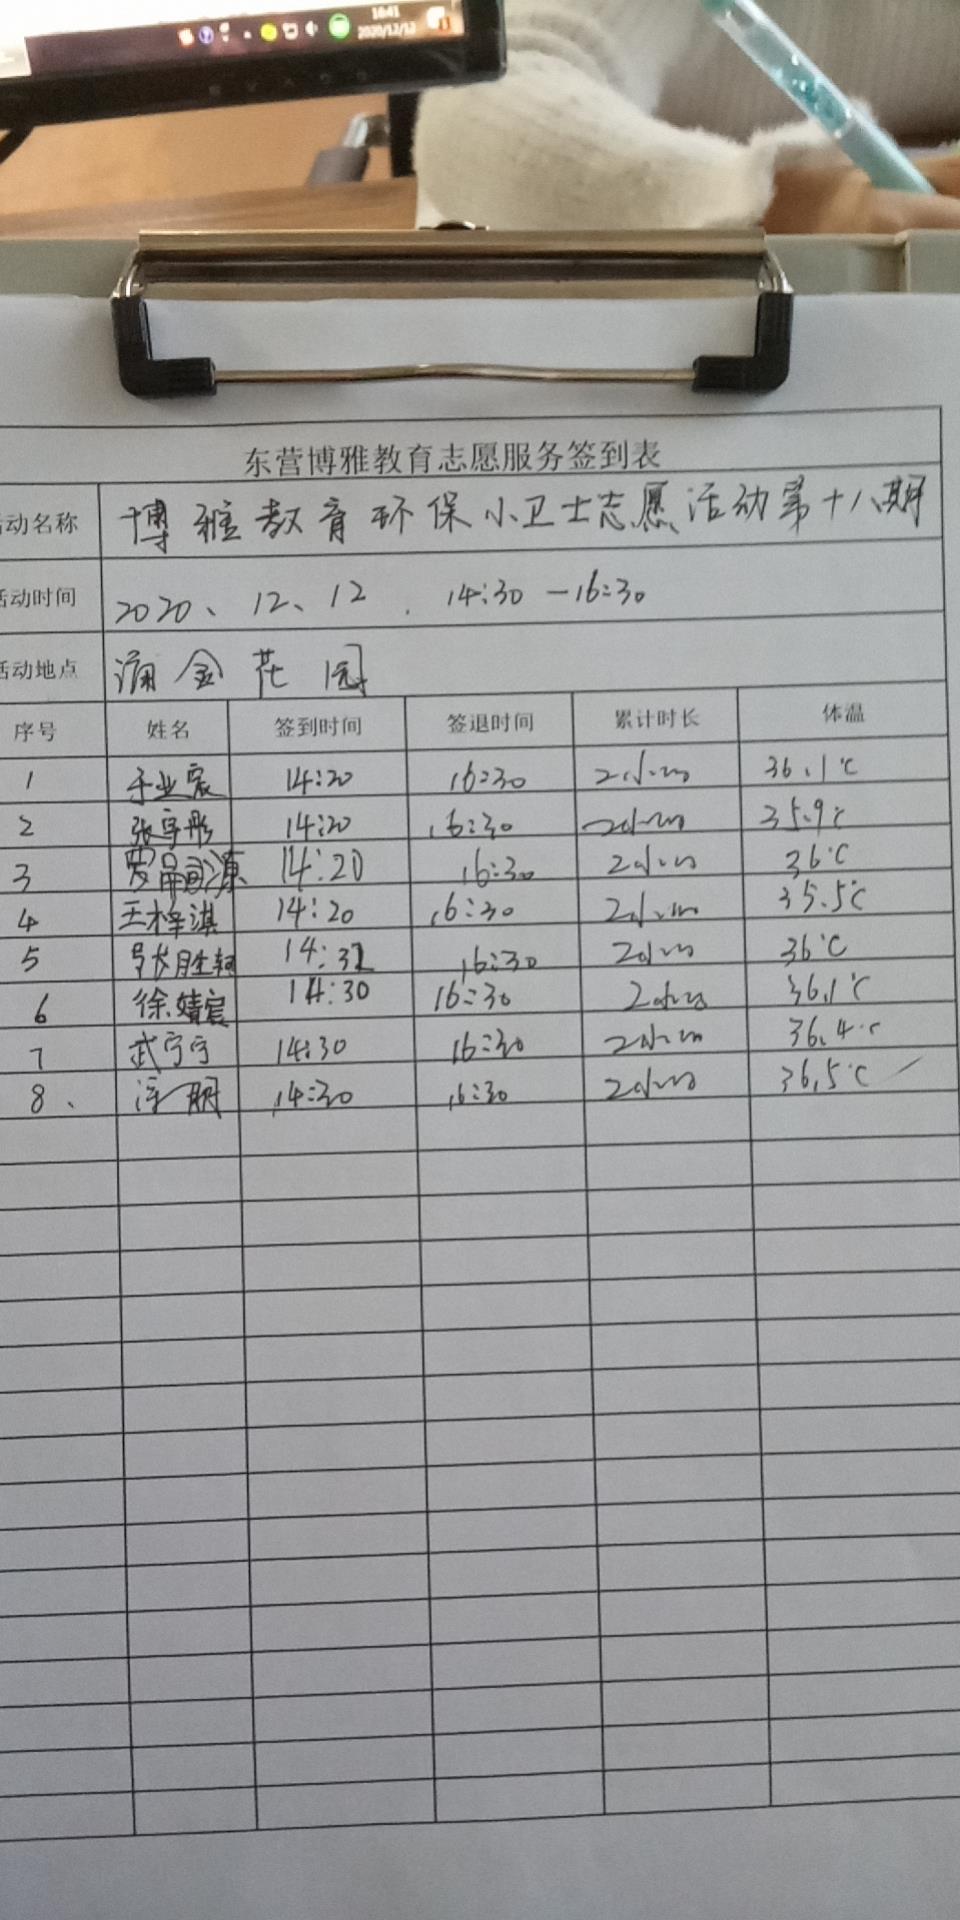 16:41
2020/12/12
东营博雅教育志愿服务签到表
动名称 博雅教育环保小卫士志愿活动第十八期
活动时间 2020、12、12 14:30—16:30
活动地点 金花园
序号 姓名 签到时间 签退时间 累计时长 体温
1 于业宸 14:20 16:30 2小时 36.1℃
2 张宇彤 14:20 16:30 2小时 35.9℃
3 14:20 16:30 2小时 36℃
4 王梓淇 14:20 16:30 2小时 35.5℃
5 14:32 16:30 2小时 36℃
6 徐婧宸 14:30 16:30 2小时 36.1℃
7 武宁宁 14:30 16:30 2小时 36.4℃
8、 14:30 16:30 2小时 36.5℃